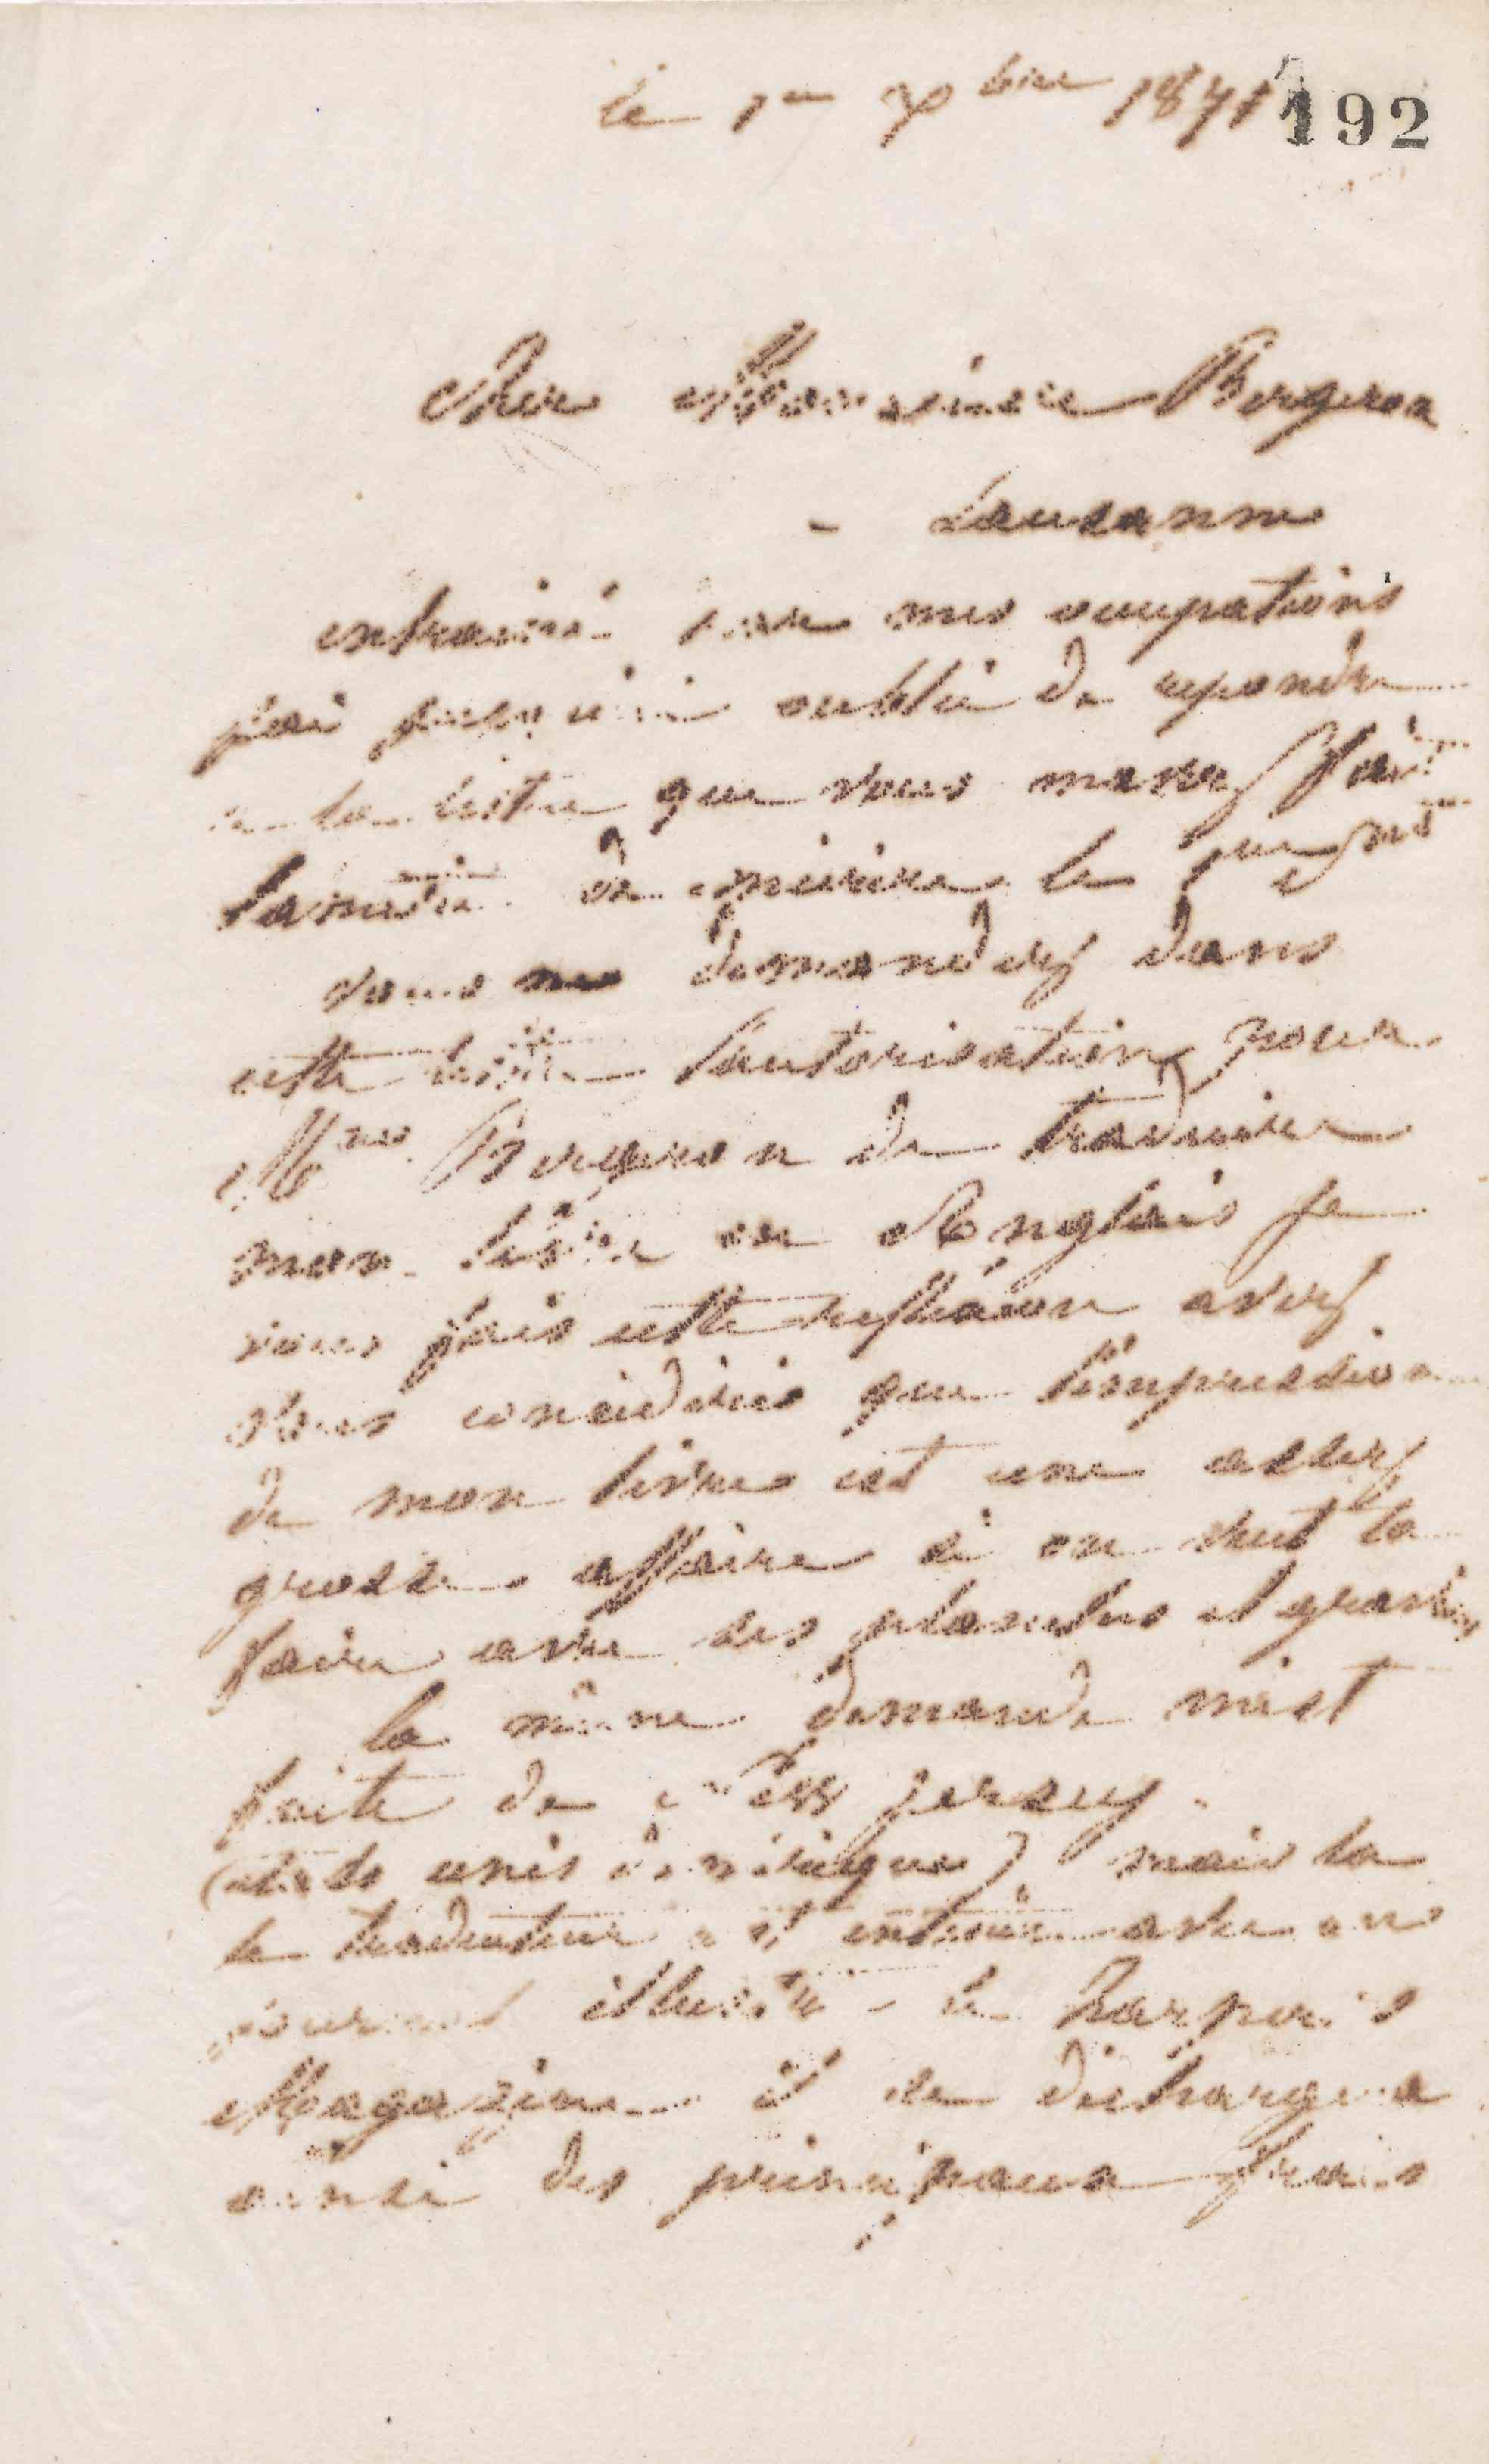 le 1er Xbre 1871
192
Cher Monsieur Bergeron
- Lausanne
entrainé par mes occupations
j'ai presque oublié de repondre
a la lettre que vous mavez fait
lamitié de mecrire le 1er
vous me demandez dans
cette lettre l'autorisation pour
Mme Bergeron de traduire
mon livre en Anglais je
vous fais cette reflexion avez
vous considéré que l'impression
de mon livre est une assez
grosse affaire si on veut la
faire avec les planches et gravures
la même demande m'est
faite de new jersey.
(etats unis damérique) mais la
le traducteur est entré avec un
journal illustré - le harper's
Magazine il se déchargera
ainsi des principaux frais